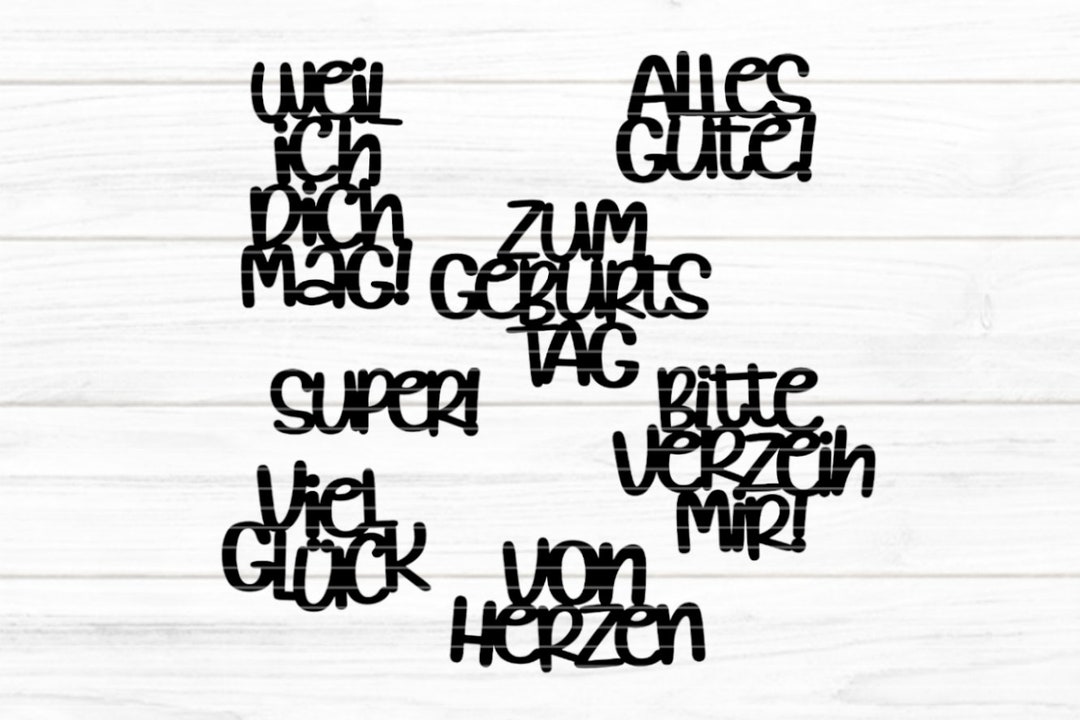 Weil
ich
Dich
Mag!
Alles
Gute!
Zum
Geburts
tag
Super!
Bitte
verzeih
mir!
Viel
Glück
Von
Herzen